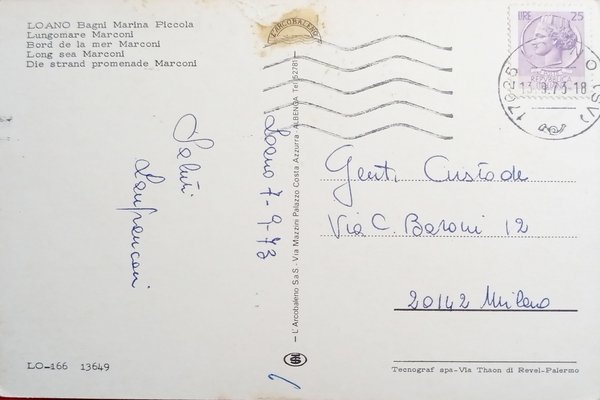 LOANO Bagni Marina Piccola
Lungomare Marconi
Bord de la mer Marconi
Long sea Marconi
Die strand promenade Marconi
L'ARCOBALENO
LIRE 25
17025
(SV)
Loano 7-9-73
Saluti
Lanfranconi
Gent. Custode
Via C. Baroni 12
20142 Milano
— L'Arcobaleno S.a.S. - Via Mazzini Palazzo Costa Azzurra - ALBENGA Tel. 52781 —
LO-166 13649
Tecnograf spa-Via Thaon di Revel-Palermo